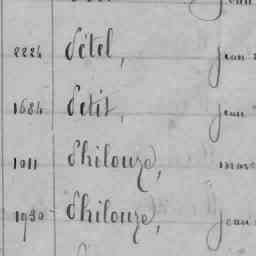 2224 Pétel, Jean
1684 Petit, Jean
1011 Philouze,
1930 Philouze, Jean